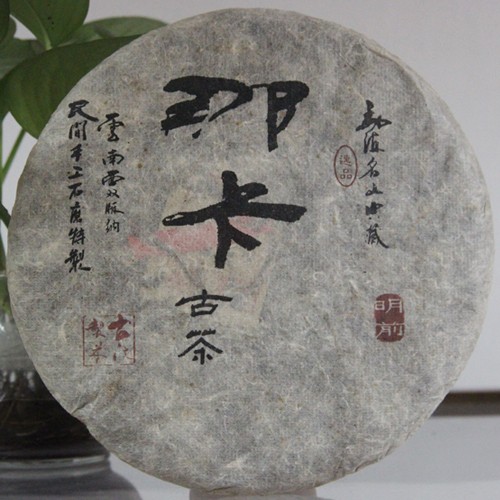 勐海名山典藏
逸品
明前
那卡
古茶
雲南西双版纳
民間手工石磨特製